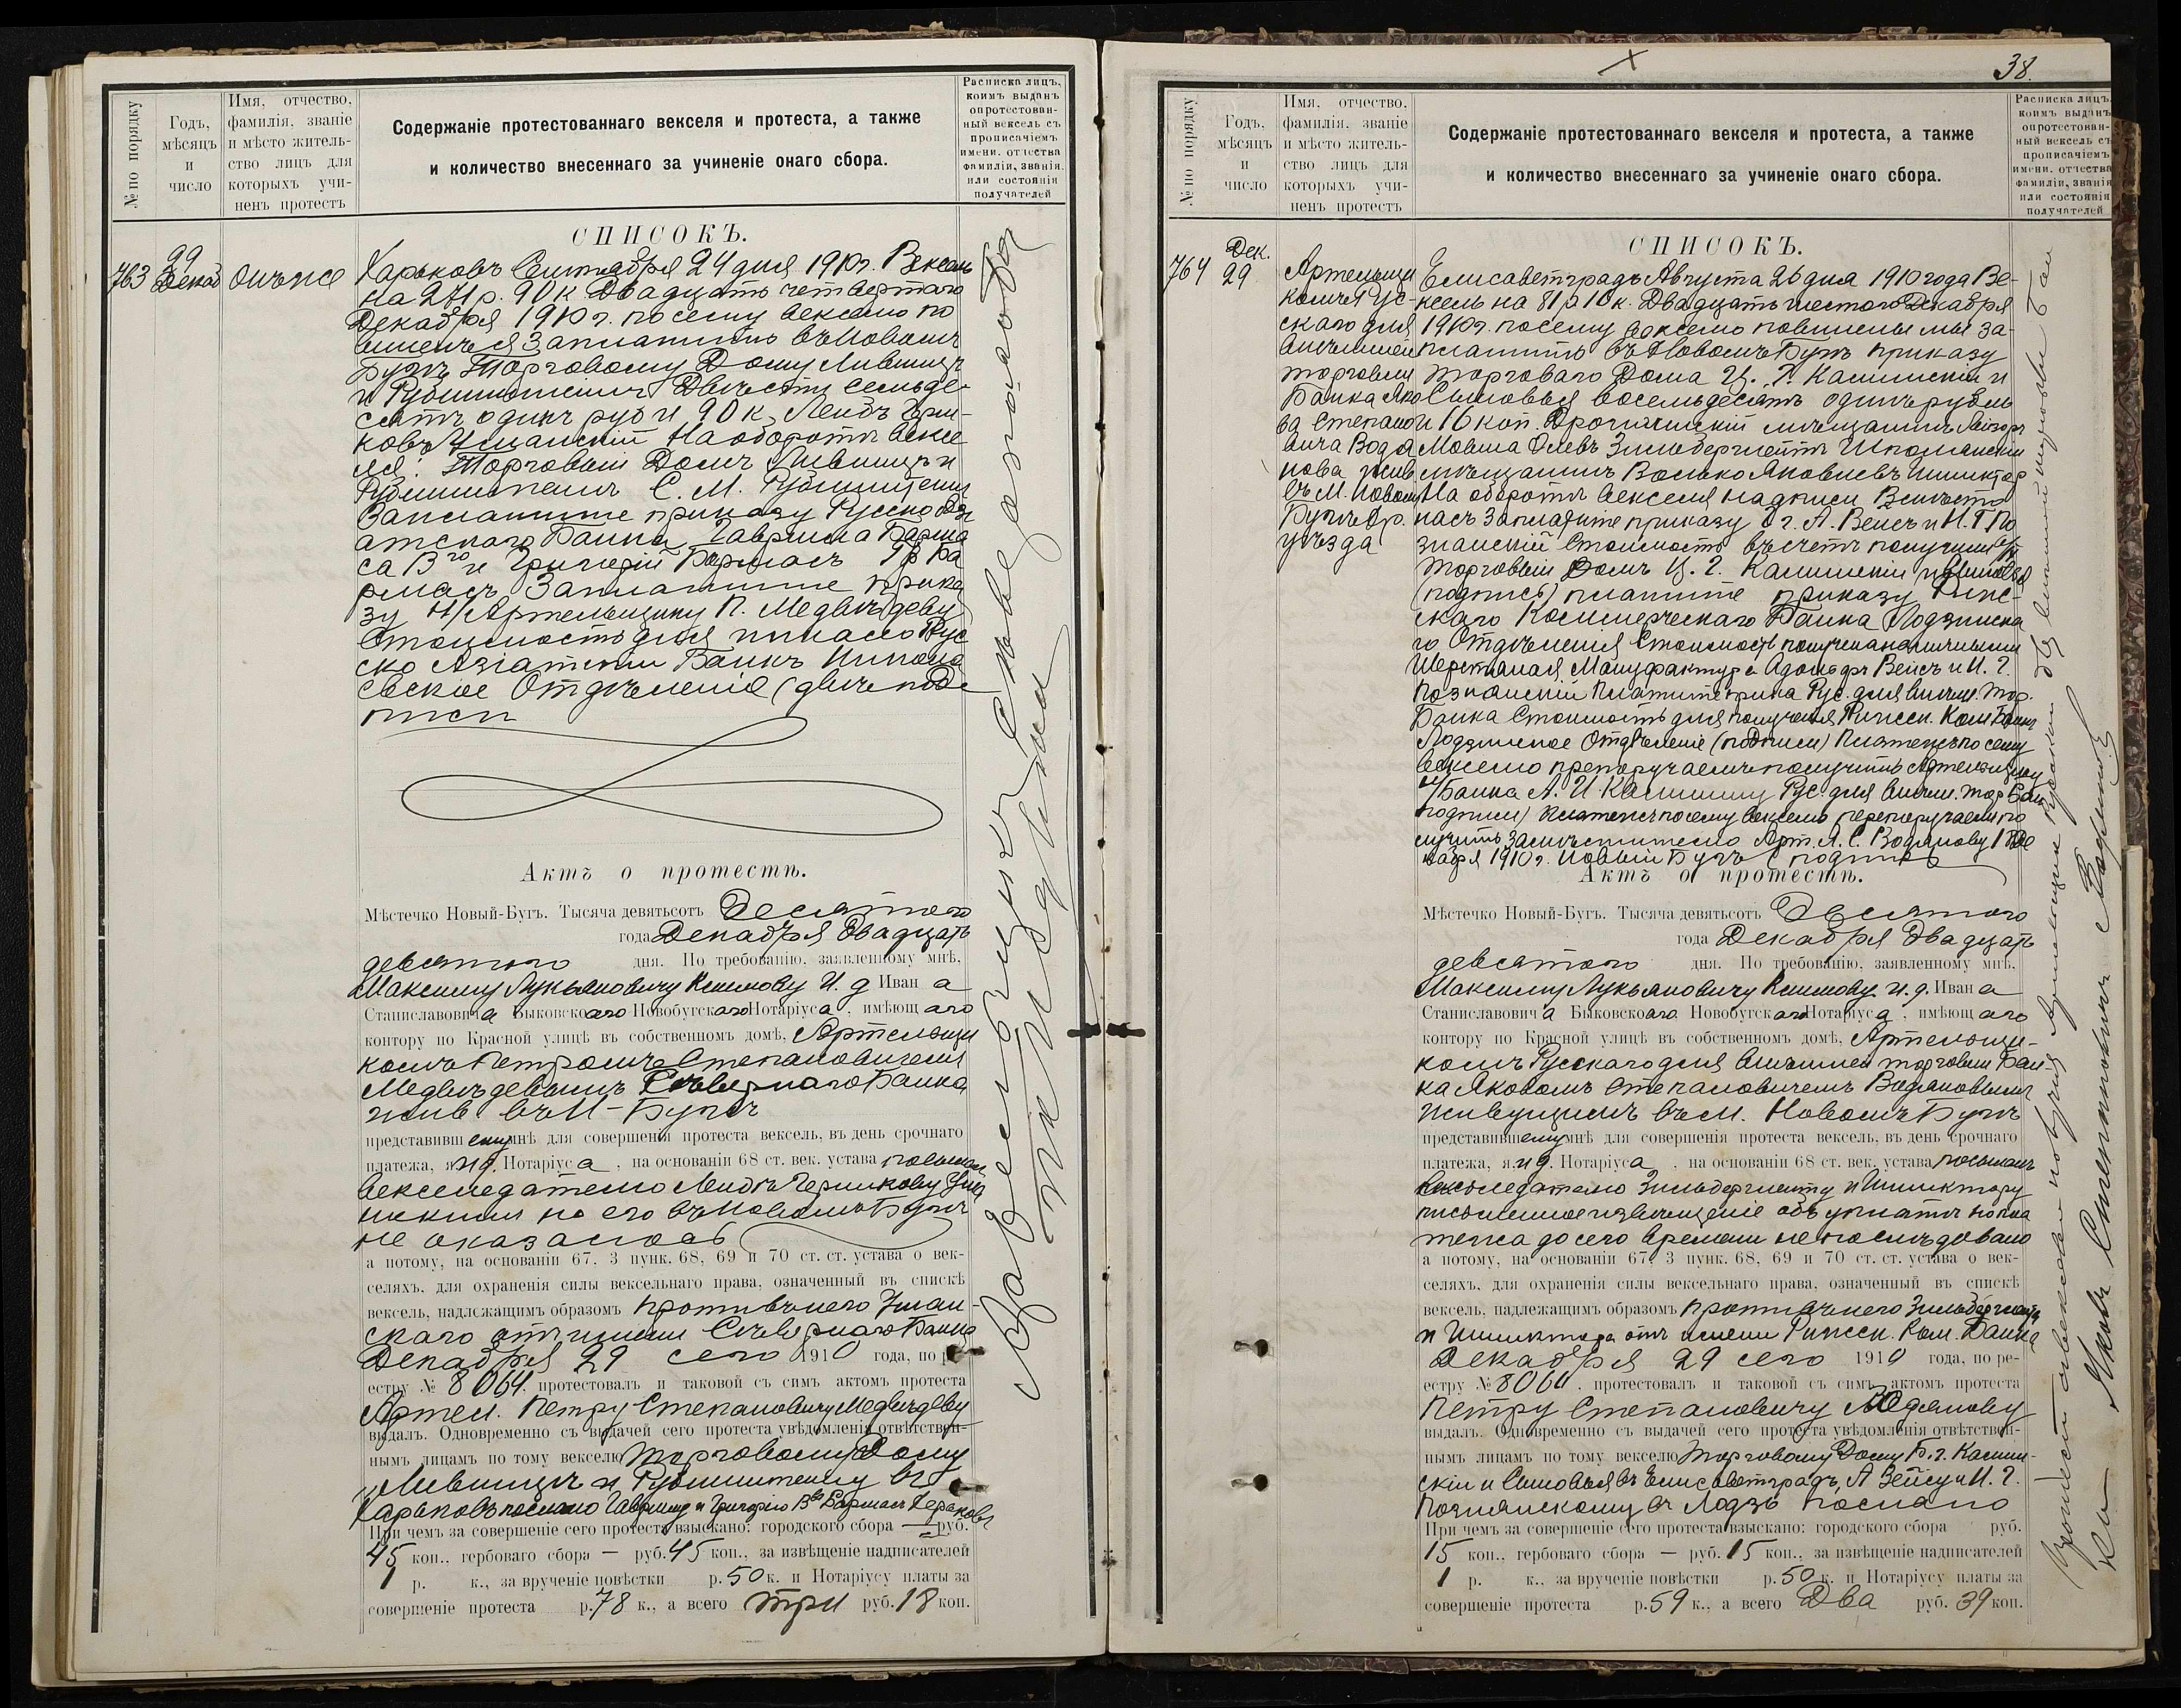 № по порядку
Годъ, мѣсяцъ и число
Имя, отчество, фамилія, званіе и мѣсто жительство лицъ для которыхъ учиненъ протестъ
Содержаніе протестованнаго векселя и протеста, а также
и количество внесеннаго за учиненіе онаго сбора.
Расписка лицъ,
коимъ выданъ
опротестован-
ный вексель съ
прописаніемъ
имени, отчества
фамиліи, званія,
или состоянія
получателей
СПИСОКЪ.
763
29 Декаб
Онъ же
Харьковъ Сентября 24 дня 1910 г. Вексель
на 271 р. 90 к. Двадцать четвертаго
Декабря 1910 г. по сему векселю по
виненъ я заплатить въ Новомъ
Бугѣ Торговому Дому Лившицъ
и Рубинштейнъ Двѣсти семьде-
сятъ одинъ руб и 90 к. Лейбъ Черни-
ковъ Уманскій На оборотѣ вексе
ля: Торговый Домъ Лившицъ и
Рубинштейнъ С. М. Рубинштейнъ
Заплатите приказу Русско Азі
атскаго Банка Гавріила Барма
са В-го и Григорій Бармасъ Гр Ба
рмасъ Заплатите прика
зу Н/Артельщику П. Медвѣдеву
Стоимость для инкассо Рус
ско Азіатскій Банкъ Никола
евское Отдѣленіе (двѣ подп
писи
Актъ о протестѣ.
Мѣстечко Новый-Бугъ. Тысяча девятьсотъ Десятого
года Декабря Двадцать
девятого дня. По требованію, заявленному мнѣ,
Максиму Лукьяновичу Климову И. д Иван а
Станиславовича Быковскаго Новобугскаго Нотаріуса, имѣющаго
контору по Красной улицѣ въ собственномъ домѣ, Артельщи
комъ Петромъ Степановичемъ
Медвѣдевымъ Сѣвернаго Банка
жив въ Н-Бугѣ
представившему мнѣ для совершенія протеста вексель, въ день срочнаго
платежа, я и д. Нотаріуса, на основаніи 68 ст. век. устава посылалъ
векселедателю Лейбѣ Черникову Ума
нскимъ но его въ Новомъ Бугѣ
не оказалось
а потому, на основаніи 67, 3 пунк. 68, 69 и 70 ст. ст. устава о век-
селяхъ, для охраненія силы вексельнаго права, означенный въ спискѣ
вексель, надлежащимъ образомъ противъ него Уман-
скаго отъ имени Сѣвернаго Банка
Декабря 29 сего 1910 года, по р
естру № 8064. протестовалъ и таковой съ симъ актомъ протеста
Артел. Петру Степановичу Медвѣдеву
выдалъ. Одновременно съ выдачей сего протеста увѣдомленія отвѣтствен-
нымъ лицамъ по тому векселю Торговому Дому
Лившицъ и Рубинштейну въ
Харьковъ послано Гавріилу и Григорію В-ва Бармасъ Харьковъ
При чемъ за совершеніе сего протеста взыскано: городского сбора — руб.
45 коп., гербоваго сбора — руб. 45 коп., за извѣщеніе надписателей
1 р. к., за врученіе повѣстки р. 50 к. и Нотаріусу платы за
совершеніе протеста р. 78 к., а всего три руб. 18 коп.
38.
№ по порядку
Годъ, мѣсяцъ и число
Имя, отчество, фамилія, званіе и мѣсто жительство лицъ для которыхъ учиненъ протестъ
Содержаніе протестованнаго векселя и протеста, а также
и количество внесеннаго за учиненіе онаго сбора.
Расписка лицъ,
коимъ выданъ
опротестован-
ный вексель съ
прописаніемъ
имени, отчества
фамиліи, званія
или состоянія
получателей
СПИСОКЪ.
764
Дек. 29
Артельщи
комъ Рус-
скаго для
внѣшней
торговли
Банка Яко
ва Степано
вича Водя
нова жив.
въ М. Новомъ
Бугѣ Хр.
уѣзда
Елисаветградъ Августа 26 дня 1910 года Ве-
ксель на 81 р 16 к. Двадцать шестого Декабря
1910 г. по сему векселю повинны мы за-
платить въ Новомъ Бугѣ приказу
Торговаго Дома Ц. Г. Калинскій и
Сыновья восемьдесятъ одинъ рубль
и 16 коп. мѣщанинъ
Мовша Зильбергментъ Шполянскій
мѣщанинъ Волько Яковлевъ Шпикторъ
На оборотѣ векселя надписи Вмѣсто
насъ заплатите приказу Г. г. А. Вейсъ и И. Г По
знанскій Стоимость въ счетъ получили
Торговый Домъ Ц. Г. Калинскій и Сыновья
(подпись) платите приказу Рижс-
скаго Коммерческаго Банка Лодзинска
го Отдѣленія Стоимость получена наличными
Шерстяная Мануфактура Адольфъ Вейсъ и И. Г.
Познанскій Платите прика Рус. для внѣш. тор.
Банка Стоимость для полученія Рижск. Ком Банкъ
Лодзинское Отдѣленіе (подписи) Платежъ по сему
векселю препоручаемъ получить Артельщику
н/Банка А. И. Калинину Рус. для внѣш. тор Бан
подписи) Платежъ по сему векселю перепоручаемъ по
лучить Замѣстителю Арт. Я. С. Водянову 1 Де
кабря 1910 г. Новый Бугъ (подпись
Актъ о протестѣ.
Мѣстечко Новый-Бугъ. Тысяча девятьсотъ Десятого
года Декабря Двадцать
девятого дня. По требованію, заявленному мнѣ,
Максиму Лукьяновичу Климову и. д. Иван а
Станиславовича Быковскаго Новобугскаго Нотаріуса, имѣющаго
контору по Красной улицѣ въ собственномъ домѣ, Артельщи-
комъ Русскаго для внѣшней торговли Бан-
ка Яковомъ Степановичемъ Водяновымъ
живущимъ въ М. Новомъ Бугѣ
представившему мнѣ для совершенія протеста вексель, въ день срочнаго
платежа, я и д. Нотаріуса, на основаніи 68 ст. век. устава посылалъ
векселедателю Зильбергменту и Шпиктору
письменное извѣщеніе объ уплатѣ но пла
тежа до сего времени не послѣдовало
а потому, на основаніи 67, 3 пунк. 68, 69 и 70 ст. ст. устава о век-
селяхъ, для охраненія силы вексельнаго права, означенный въ спискѣ
вексель, надлежащимъ образомъ противъ него Зильбергмента
и Шпиктора отъ имени Рижск. Ком. Банка
Декабря 29 сего 1910 года, по ре-
естру № 8064. протестовалъ и таковой съ симъ актомъ протеста
Петру Степановичу Водянову
выдалъ. Одновременно съ выдачей сего протеста увѣдомленія отвѣтствен-
нымъ лицамъ по тому векселю Торговому Дому Б. г. Калин-
скій и Сыновья въ Елисаветградъ, А Вейсу и И. Г.
Познянскому въ Лодзь послано
При чемъ за совершеніе сего протеста взыскано: городского сбора руб.
15 коп., гербоваго сбора — руб. 15 коп., за извѣщеніе надписателей
1 р. к., за врученіе повѣстки р. 50 к. и Нотаріусу платы за
совершеніе протеста р. 59 к., а всего Два руб. 39 коп.